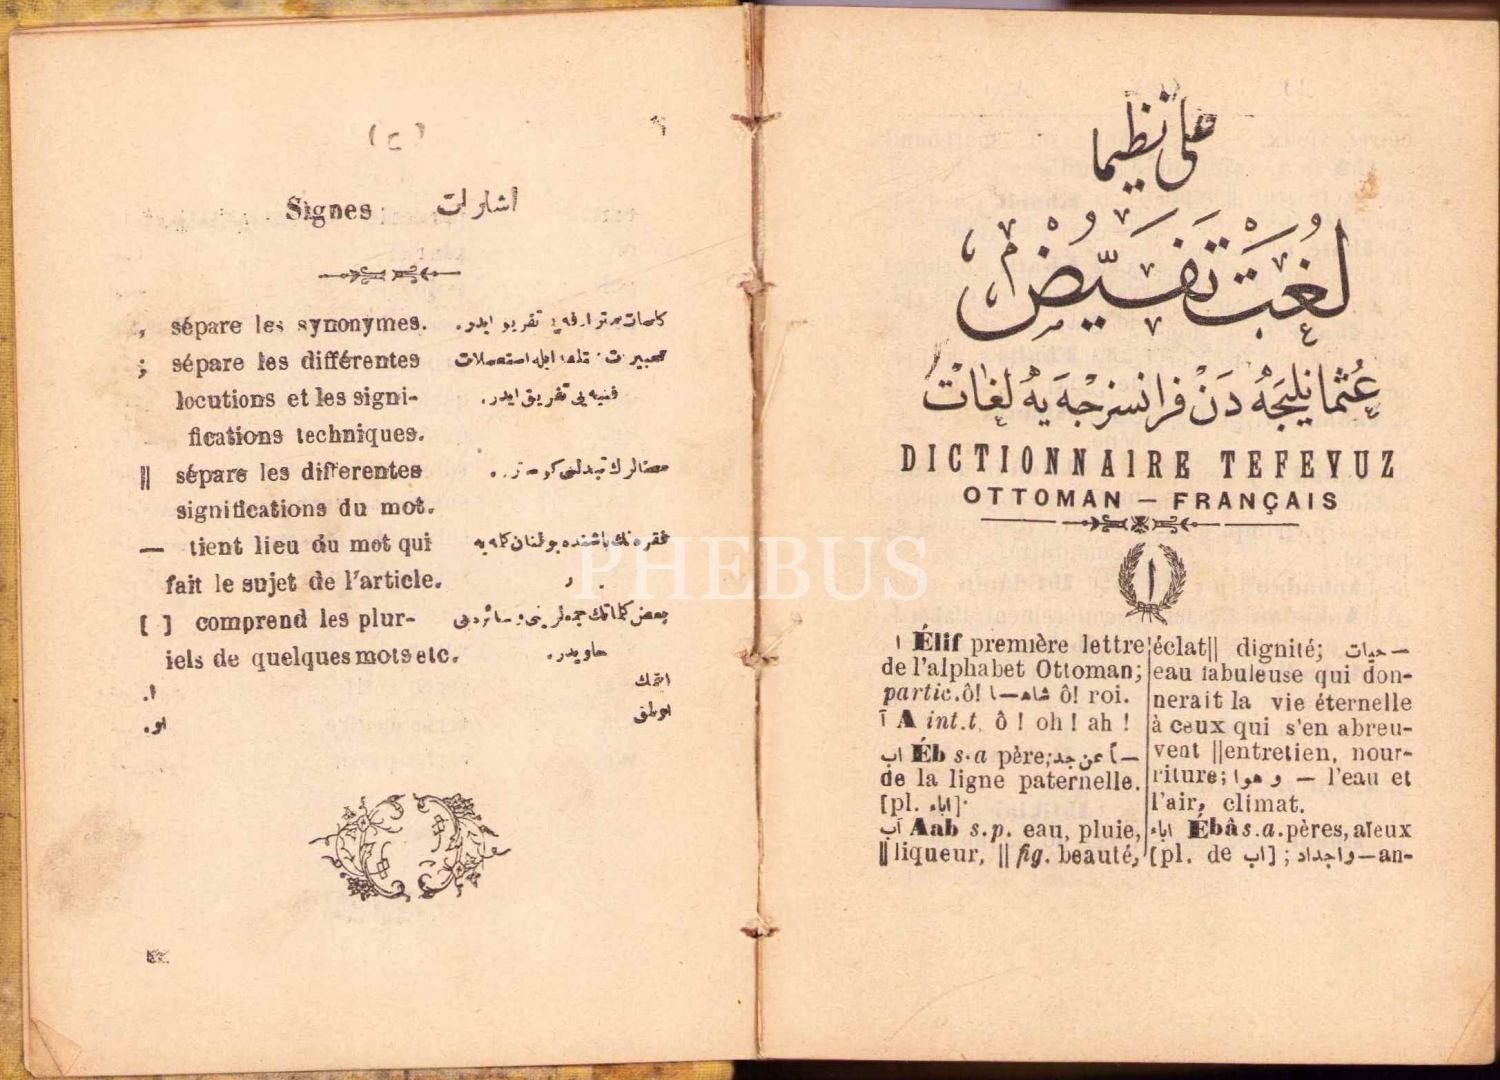 (د)
Signes اشارات
, sépare les synonymes.
; sépare les différentes
locutions et les signi-
fications techniques.
|| sépare les differentes
significations du mot.
— tient lieu du mot qui
fait le sujet de l'article.
[ ] comprend les plur-
iels de quelques mots etc.
ا.
او.
كلمات مترادفه يى تفريق ايدر.
فنيه يى تفريق ايدر.
معنالرك تبدلنى كوستر..
فقره نك باشنده بولنان كلمه يه
بعض كلماتك جمعلرينى و سائره يى
حاويدر.
ايتمك
اولمق
على نظيما
لغت تفيض
عثمانليجه دن فرانسزجه يه لغات
DICTIONNAIRE TEFEYUZ
OTTOMAN — FRANÇAIS
ا
ا Élif première lettre
de l'alphabet Ottoman;
partic. ô! شاه—ا ô! roi.
آ A int.t. ô ! oh ! ah !
اب Éb s.a père; اً عن جد—
de la ligne paternelle.
[pl. اباء].
آب Aab s.p. eau, pluie,
|| liqueur, || fig. beauté,
éclat|| dignité; حيات —
eau fabuleuse qui don-
nerait la vie éternelle
à ceux qui s'en abreu-
vent ||entretien, nour-
riture; و هوا — l'eau et
l'air, climat.
اباء Ébâ s.a. pères, aïeux
[pl. de اب] ; واجداد—an-
PHEBUS